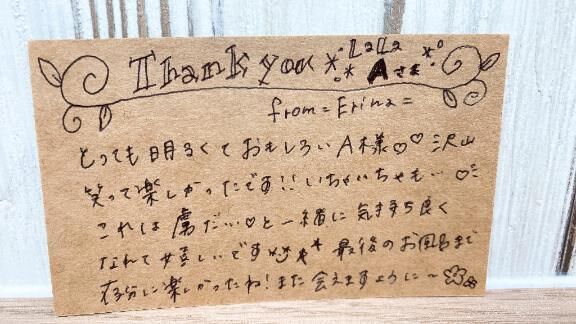 Thank you LaLa
Aさま
from=Erina=
とっても明るくておもしろいA様♡♡沢山
笑って楽しかったです!!いちゃいちゃも…♡
これは虜だ…♡と一緒に気持ち良く
なれて嬉しいです 最後のお風呂まで
存分に楽しかったね!また会えますように～